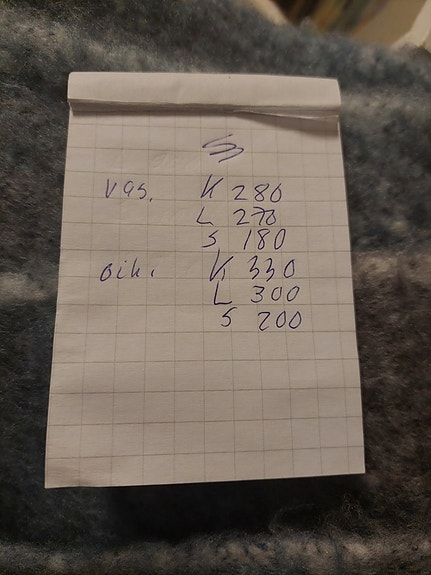 vas. K 280
L 270
S 180
oik. K 330
L 300
S 200